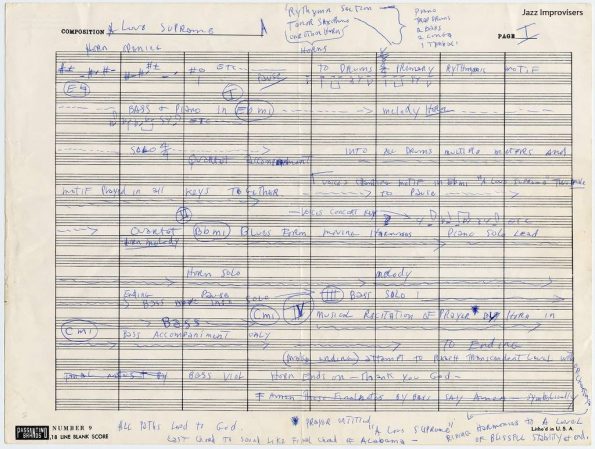 Jazz Improvisers
Rythym Section -
Tenor Saxophone
one other Horn
Horns
Piano
Trap Drums
2 Bass
2 Conga
1 Timbale
COMPOSITION A Love Supreme
PAGE I
Horn
etc
Pause
To Drums Primary Rythmic motif
I
Bass + Piano in Ebmi
melody Horn
etc
Solo 4/4
Quartet accompaniment
Into all Drums multiple meters and
Voices chanting motif in Ebmi "A Love Supreme"
motif Played in all Keys Together
to Pause
Voices Concert
etc
II
Quartet Bbmi Blues Form moving Harmonies Piano Solo Lead
Horn melody
Horn Solo melody
Ending Pause
Bass Solo III Bass Solo
Cmi IV Musical Recitation of Prayer * by Horn in
Cmi Bass
Bass Accompaniment only
To Ending
(make ending) attempt to reach transcendent level with
Orchestra
by Bass Viol Horn ends on - Thank you God -
Final notes by Bass say Amen - symbolically
PASSANTINO BRANDS NUMBER 9
18 LINE BLANK SCORE
Litho'd in U.S.A.
All paths lead to God.
* Prayer entitled "A Love Supreme"
Last chord to sound like final chord of Alabama -
Harmonies to a level
of blissful stability at end.